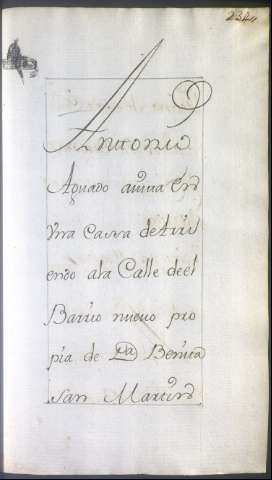 234
Antonio
Aguado
Una Cassa de
endo ala Calle de el
Barrio nuevo pro
pia de Da Benita
San Martin